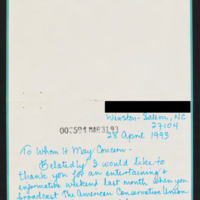 Winston-Salem, NC
27104
007594 MAR 31 93
28 April 1993
To Whom It May Concern -
Belatedly I would like to
thank you for an entertaining &
informative weekend last month when you
broadcast The American Conservative Union